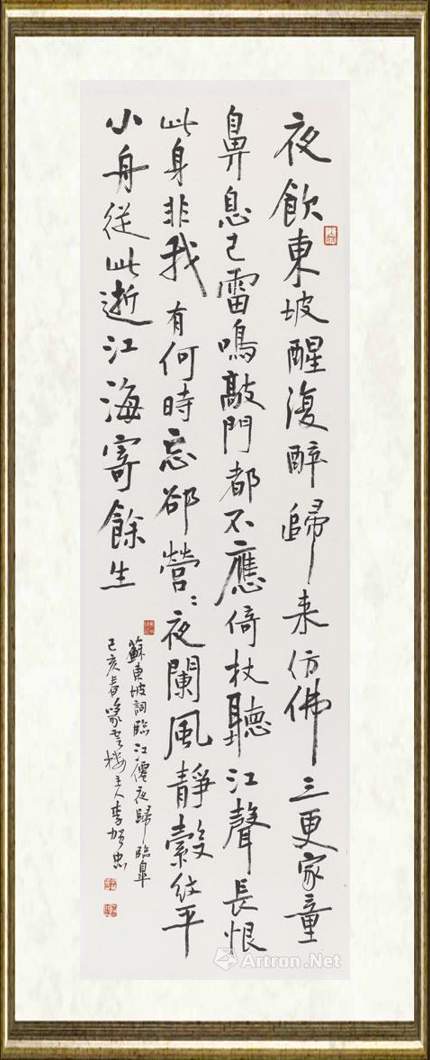 夜飲東坡醒復醉歸来仿佛三更家童
鼻息已雷鳴敲門都不應倚杖聽江聲長恨
此身非我有何時忘郤營:夜闌風靜縠紋平
小舟從此逝江海寄餘生
蘇東坡詞臨江僊夜歸臨皐
己亥春楼主人李忠
Artron.Net